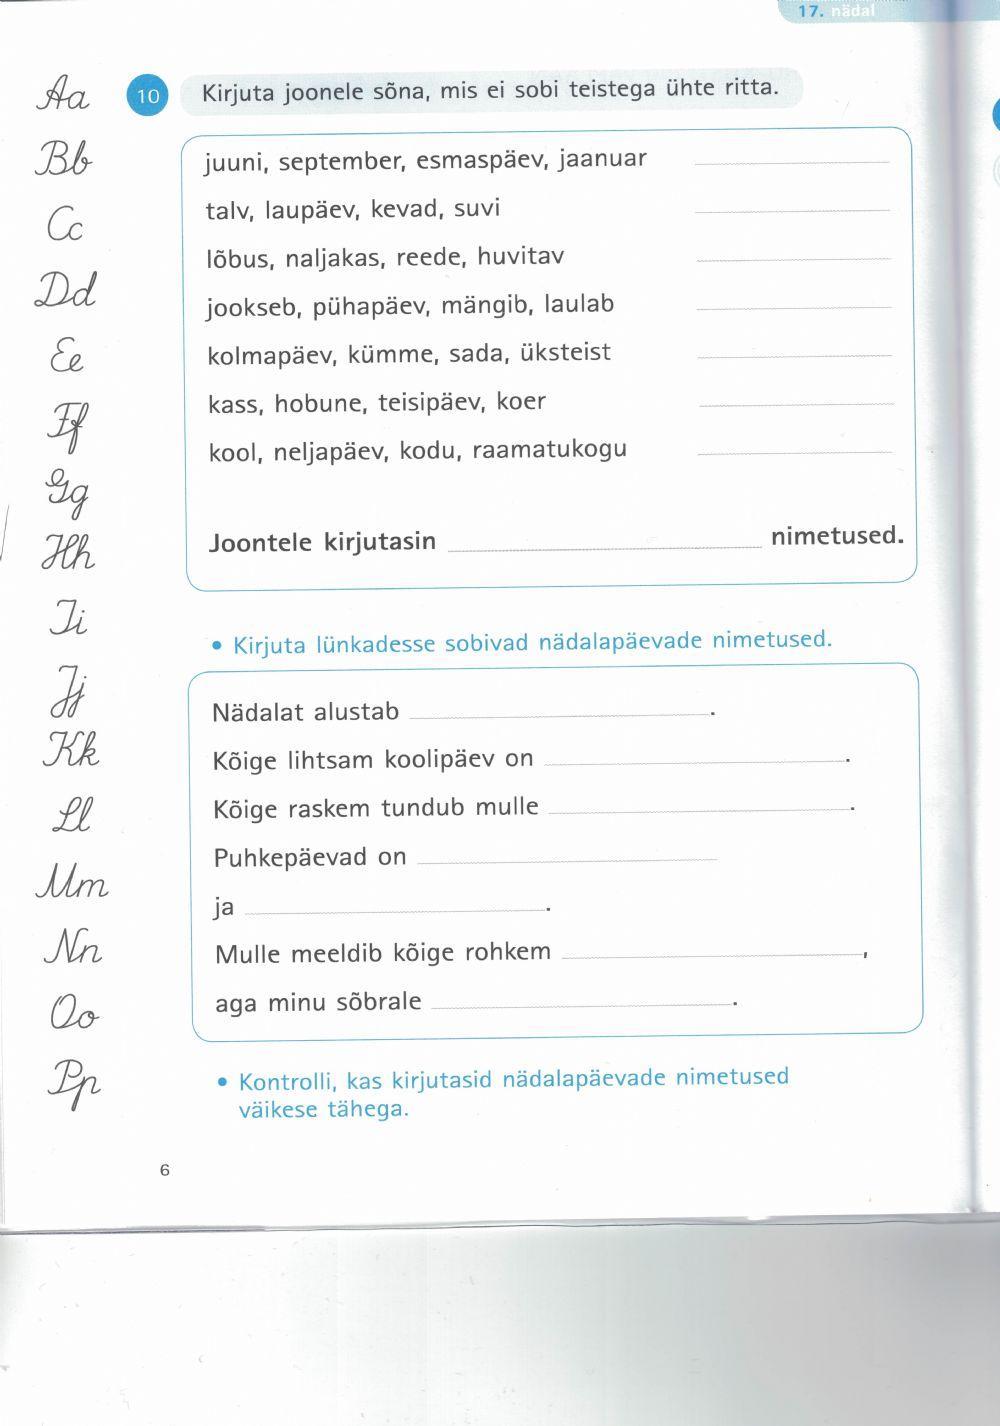 17. nädal
Aa
10 Kirjuta joonele sõna, mis ei sobi teistega ühte ritta.
Bb
juuni, september, esmaspäev, jaanuar
Cc
talv, laupäev, kevad, suvi
lõbus, naljakas, reede, huvitav
Dd
jookseb, pühapäev, mängib, laulab
Ee
kolmapäev, kümme, sada, üksteist
kass, hobune, teisipäev, koer
Ff
kool, neljapäev, kodu, raamatukogu
Gg
Joontele kirjutasin nimetused.
Hh
Ii
• Kirjuta lünkadesse sobivad nädalapäevade nimetused.
Jj
Nädalat alustab .
Kk
Kõige lihtsam koolipäev on .
Kõige raskem tundub mulle .
Ll
Puhkepäevad on
Mm
ja .
Nn
Mulle meeldib kõige rohkem ,
aga minu sõbrale .
Oo
Pp
• Kontrolli, kas kirjutasid nädalapäevade nimetused
väikese tähega.
6